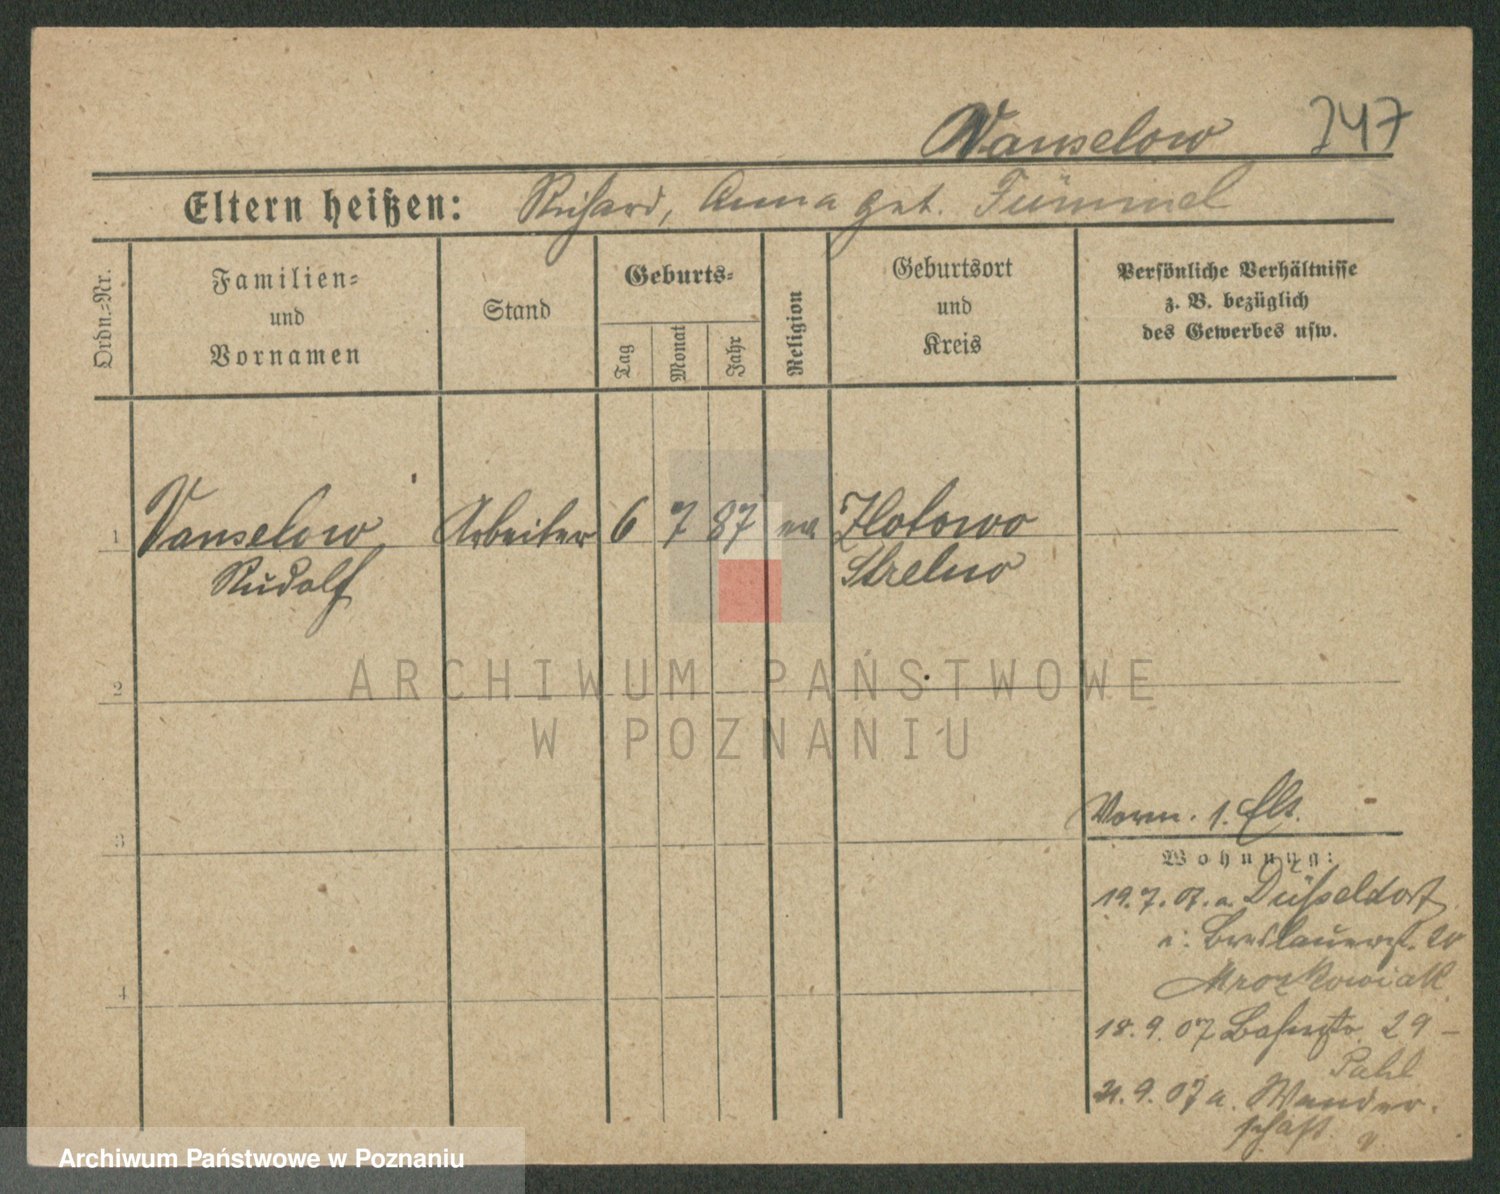 Vanselow 247
Eltern heißen: Richard, Anna geb. Fümmel
Ordn.-Nr.
Familien-
und
Vornamen
Stand
Geburts-
Tag
Monat
Jahr
Religion
Geburtsort
und
Kreis
Persönliche Verhältnisse
z. B. bezüglich
des Gewerbes usw.
1 Vanselow Arbeiter 6 7 87 ev Zlotowo
Rudolf Strelno
2
ARCHIWUM PAŃSTWOWE
W POZNANIU
3
4
Vorm. 1.
Wohnung:
19.7.07. a. Düsseldorf
n. Breslauerst. 20
Mrozkowiak
18.9.07 Bahnstr. 29 –
Pahl
21.9.07 a. Wander-
schaft
Archiwum Państwowe w Poznaniu